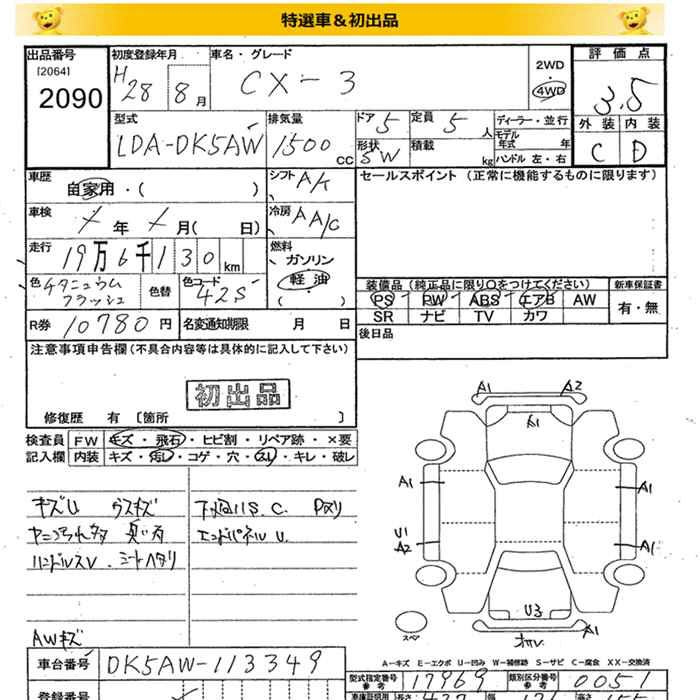 特選車＆初出品
出品番号
[2064]
2090
初度登録年月
H28 8月
車名・グレード
CX-3
2WD
・
4WD
評価点
3.5
外装 内装
C D
型式
LDA-DK5AW
排気量
1500cc
ドア 5
定員 5人
形状 SW
積載 kg
ディーラー・並行
モデル年式 年
ハンドル 左・右
車歴
自家用・( )
シフト A/T
セールスポイント (正常に機能するものに限ります)
車検
年 月( 日)
冷房 AA/C
走行
19万6千130km
燃料
ガソリン
軽油
( )
色 チタニュウム
フラッシュ
色替
色コード
42S
装備品 (純正品に限り○をつけてください)
新車保証書
PS PW ABS エアB AW
SR ナビ TV カワ
有・無
R券 10780円
名変通知期限 月 日
後日品
注意事項申告欄(不具合内容等は具体的に記入して下さい)
初出品
修復歴 有 [箇所 ]
検査員
記入欄
FW キズ・飛石・ヒビ割・リペア跡・×要
内装 キズ・汚レ・コゲ・穴・スレ・キレ・破レ
キズU ウスキズ
ヤニヨゴレ多 臭い有
ハンドルスレ・シートヘタリ
下廻りS.C.
エンドパネルU.
AWキズ
A1 A2
A1
A1 A1
U1
A2 A1
U3
A1
スペア
車台番号
DK5AW-113349
A-キズ E-エクボ U-凹み W-補修跡 S-サビ C-腐食 XX-交換済
型式指定番号
参考
17969
類別区分番号
参考
0051
登録番号